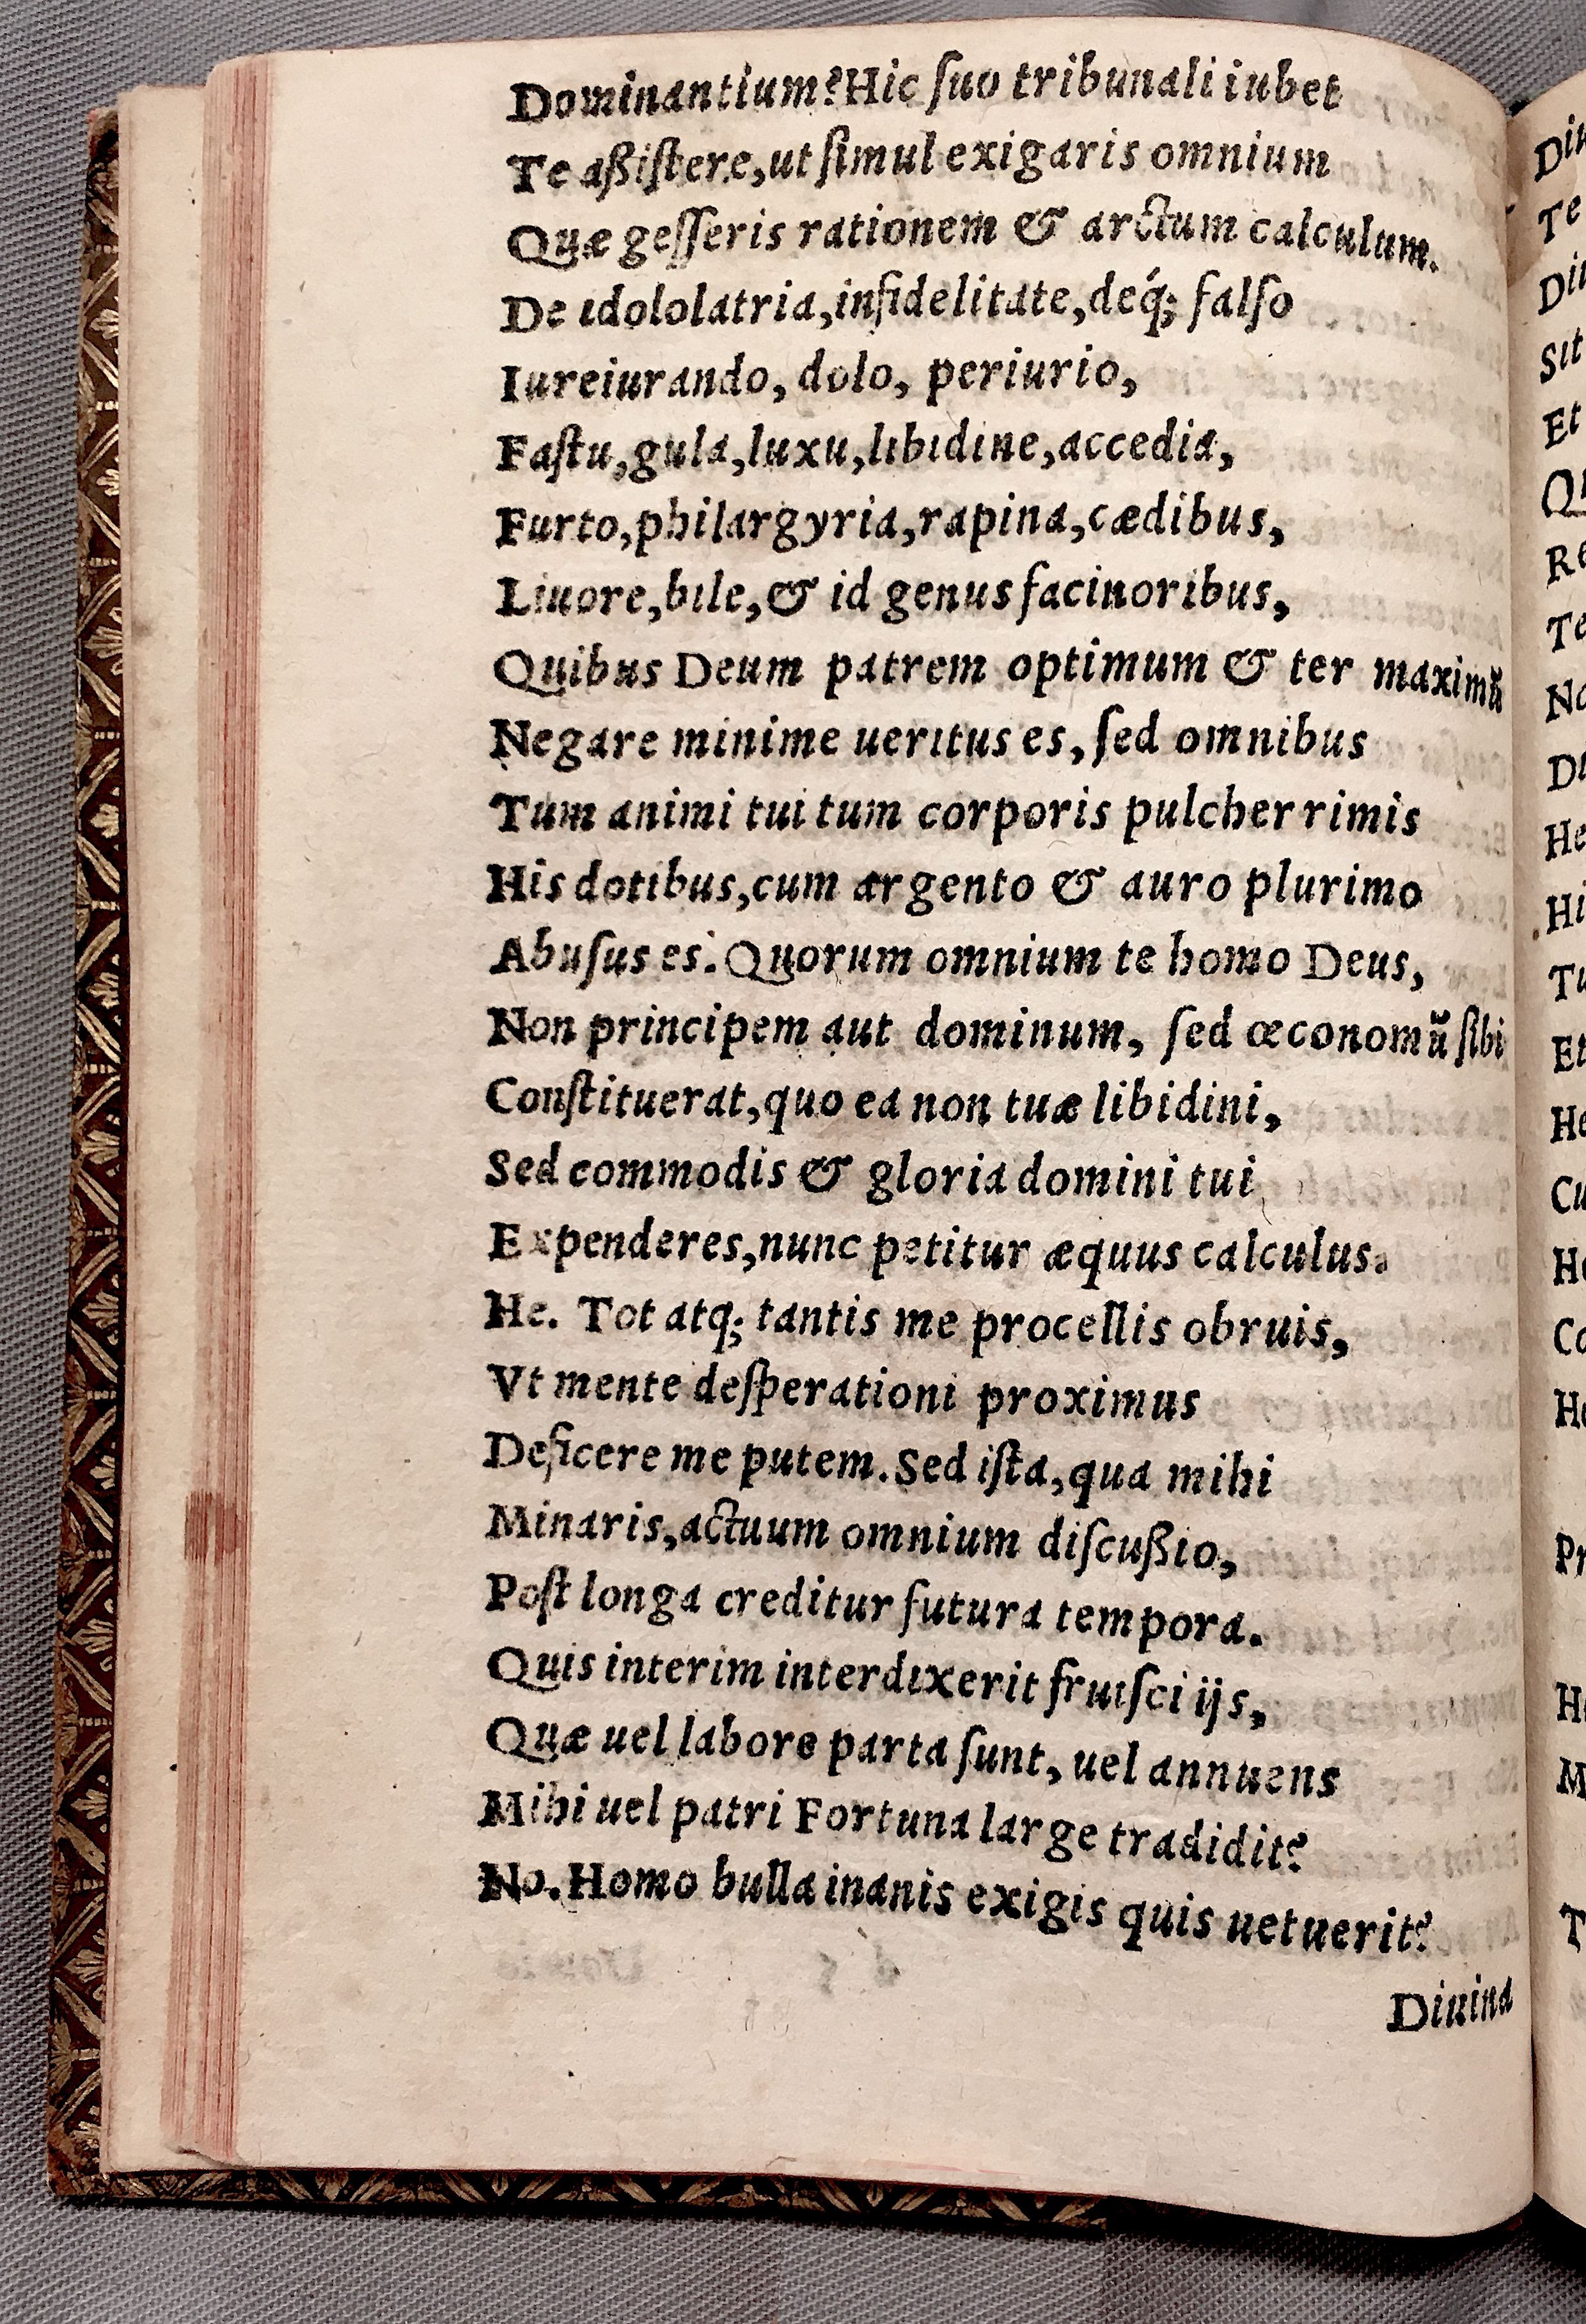 Dominantium? Hic ſuo tribunali iubet
Te aßiſtere, ut ſimul exigaris omnium
Quæ geſſeris rationem & arctum calculum.
De idololatria, infidelitate, deq́; falſo
Iureiurando, dolo, periurio,
Faſtu, gula, luxu, libidine, accedia,
Furto, philargyria, rapina, cædibus,
Liuore, bile, & id genus facinoribus,
Quibus Deum patrem optimum & ter maximũ
Negare minime ueritus es, ſed omnibus
Tum animi tui tum corporis pulcherrimis
His dotibus, cum argento & auro plurimo
Abuſus es. Quorum omnium te homo Deus,
Non principem aut dominum, ſed œconomũ ſibi
Conſtituerat, quo ea non tuæ libidini,
Sed commodis & gloria domini tui
Expenderes, nunc petitur æquus calculus.
He. Tot atq; tantis me procellis obruis,
Vt mente deſperationi proximus
Deficere me putem. Sed iſta, qua mihi
Minaris, actuum omnium diſcußio,
Poſt longa creditur futura tempora.
Quis interim interdixerit fruiſci ijs,
Quæ uel labore parta ſunt, uel annuens
Mihi uel patri Fortuna large tradidit?
No. Homo bulla inanis exigis quis uetuerit?
Diuina
Te
Sit
Et